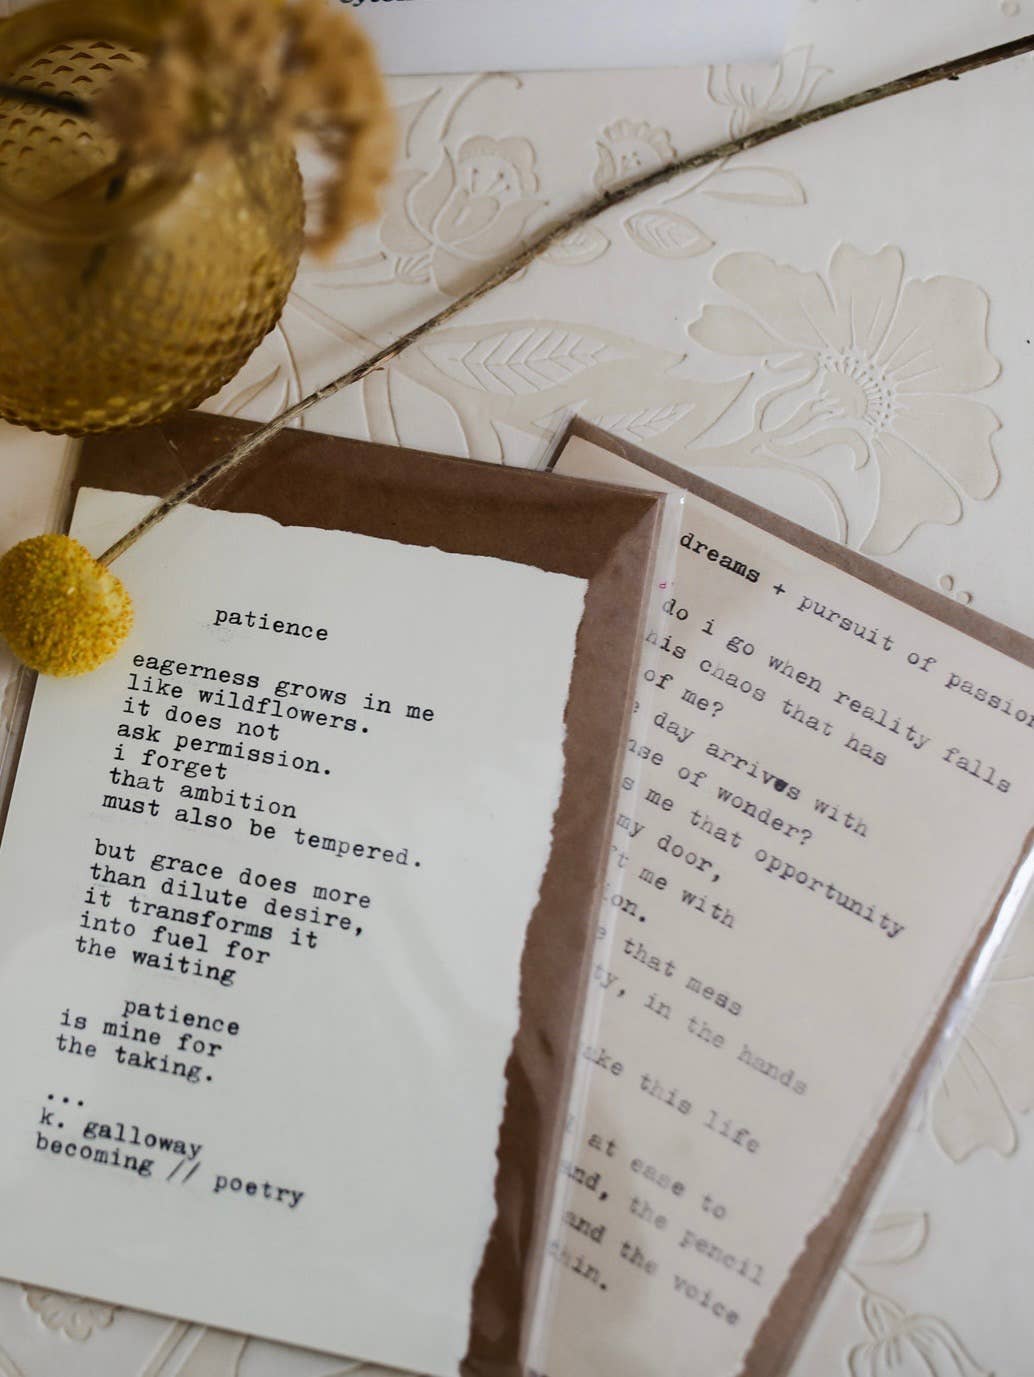 patience
eagerness grows in me
like wildflowers.
it does not
ask permission.
i forget
that ambition
must also be tempered.
but grace does more
than dilute desire,
it transforms it
into fuel for
the waiting
patience
is mine for
the taking.
...
k. galloway
becoming // poetry
dreams + pursuit of passion
do i go when reality falls
his chaos that has
of me?
day arrives with
of wonder?
me that opportunity
my door,
me with
that mess
in the hands
this life
at ease to
the pencil
and the voice